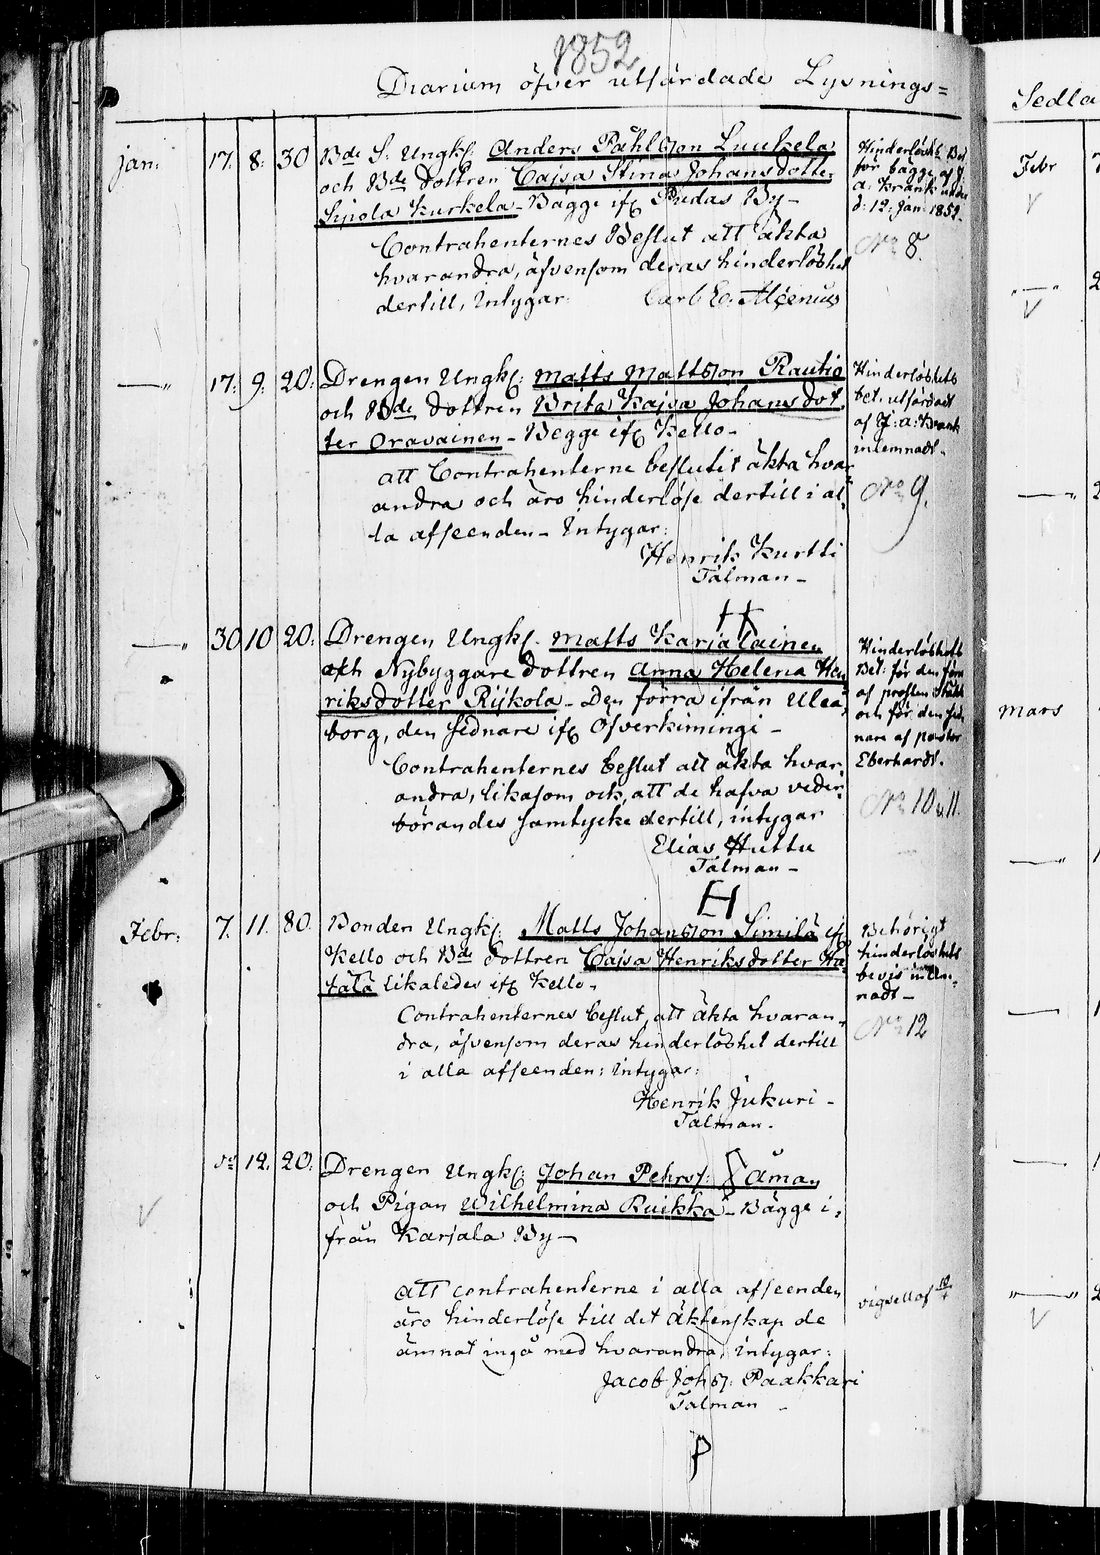 1852
Diarium öfver utfärdade Lysnings=
Jan: 17. 8. 30 Bde S. Ungk: Anders Påhlsson Luukela
och Bde dottren Cajsa Stina Johansdotter
Sipola Kurkela - Bägge ifr Pudas By -
Contrahenternes Beslut att äkta
hvarandra, äfvensom deras hinderlöshet
dertill, intygar: Carl E. Alcenius
Hinderlösh: Bet
för bägge af J:
A: Krank utfär
d: 12: Jan: 1852.
No 8.
—"— 17: 9: 20: Drengen Ungk: Matts Mattsson Rautio
och Bde dottren Brita Kajsa Johansdot
ter Oravainen - Begge ifr Kello -
att Contrahenterne beslutit äkta hvar
andra och äro hinderlöse dertill i al
la afseenden - Intygar:
Henrik Kurtti
Talman -
Hinderlöshets
bet: utfärdadt
af J: A: Krank
inlemnadt.
No 9.
—"— 30 10 20: Drengen Ungk: Matts Karjalainen
och Nybyggare dottren Anna Helena Hen
riksdotter Riikola - Den förra ifrån Uleå
borg, den sednare ifr Öfverkimingi -
Contrahenternes beslut att äkta hvar
andra, likasom ock, att de hafva veder
börandes samtycke dertill, intygar
Elias Huttu
Talman -
H
Hinderlöshets
Bet: för den förra
af prosten
och för den sed
nare af pastor
Eberhardt.
No 10 u 11.
Febr: 7. 11. 80. Bonden Ungk: Matts Johansson Similä ifr
Kello och Bde dottren Cajsa Henriksdotter Ha
tala likaledes ifr Kello -
Contrahenternes beslut, att äkta hvaran
dra, äfvensom deras hinderlöshet dertill
i alla afseenden: intygar:
Henrik Jukuri -
Talman.
Behörigt
hinderlöshets
bevis inlem
nadt -
No 12
do 12. 20: Drengen Ungk: Johan Pehrs: Åman
och Pigan Wilhelmina Ruikka - Bägge i
från Karjala By -
att contrahenterne i alla afseenden
äro hinderlöse till det äktenskap de
ämnat ingå med hvarandra, intygar:
Jacob Johss: Paakkari
Talman -
P
Sedla
Febr
—"—
Mars